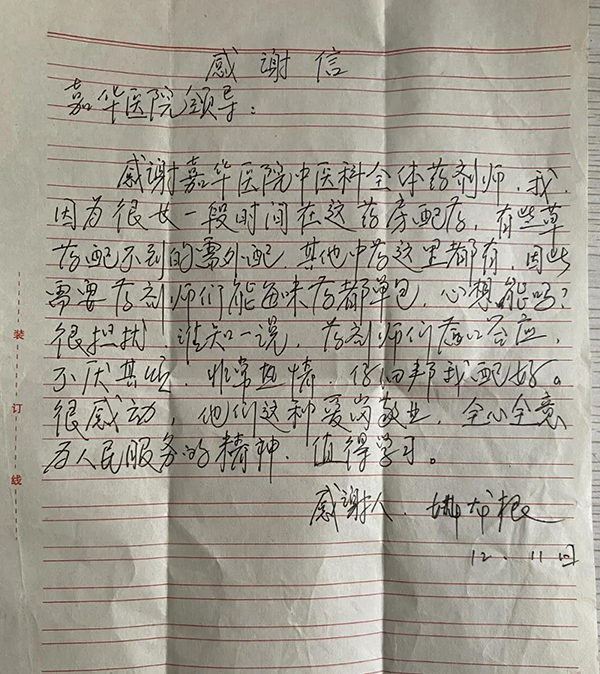 感谢信
嘉华医院领导：
感谢嘉华医院中医科全体药剂师，我
因为很长一段时间在这药房配药，有些草
药配不到的需外配，其他中药这里都有，因此
需要药剂师们能每味药都单包，心想能吗？
很担扰，谁知一说，药剂师们满口答应，
不厌其烦，非常热情，仔细帮我配好。
很感动，他们这种爱岗敬业，全心全意
为人民服务的精神，值得学习。
感谢人：根
12.11日
装
订
线